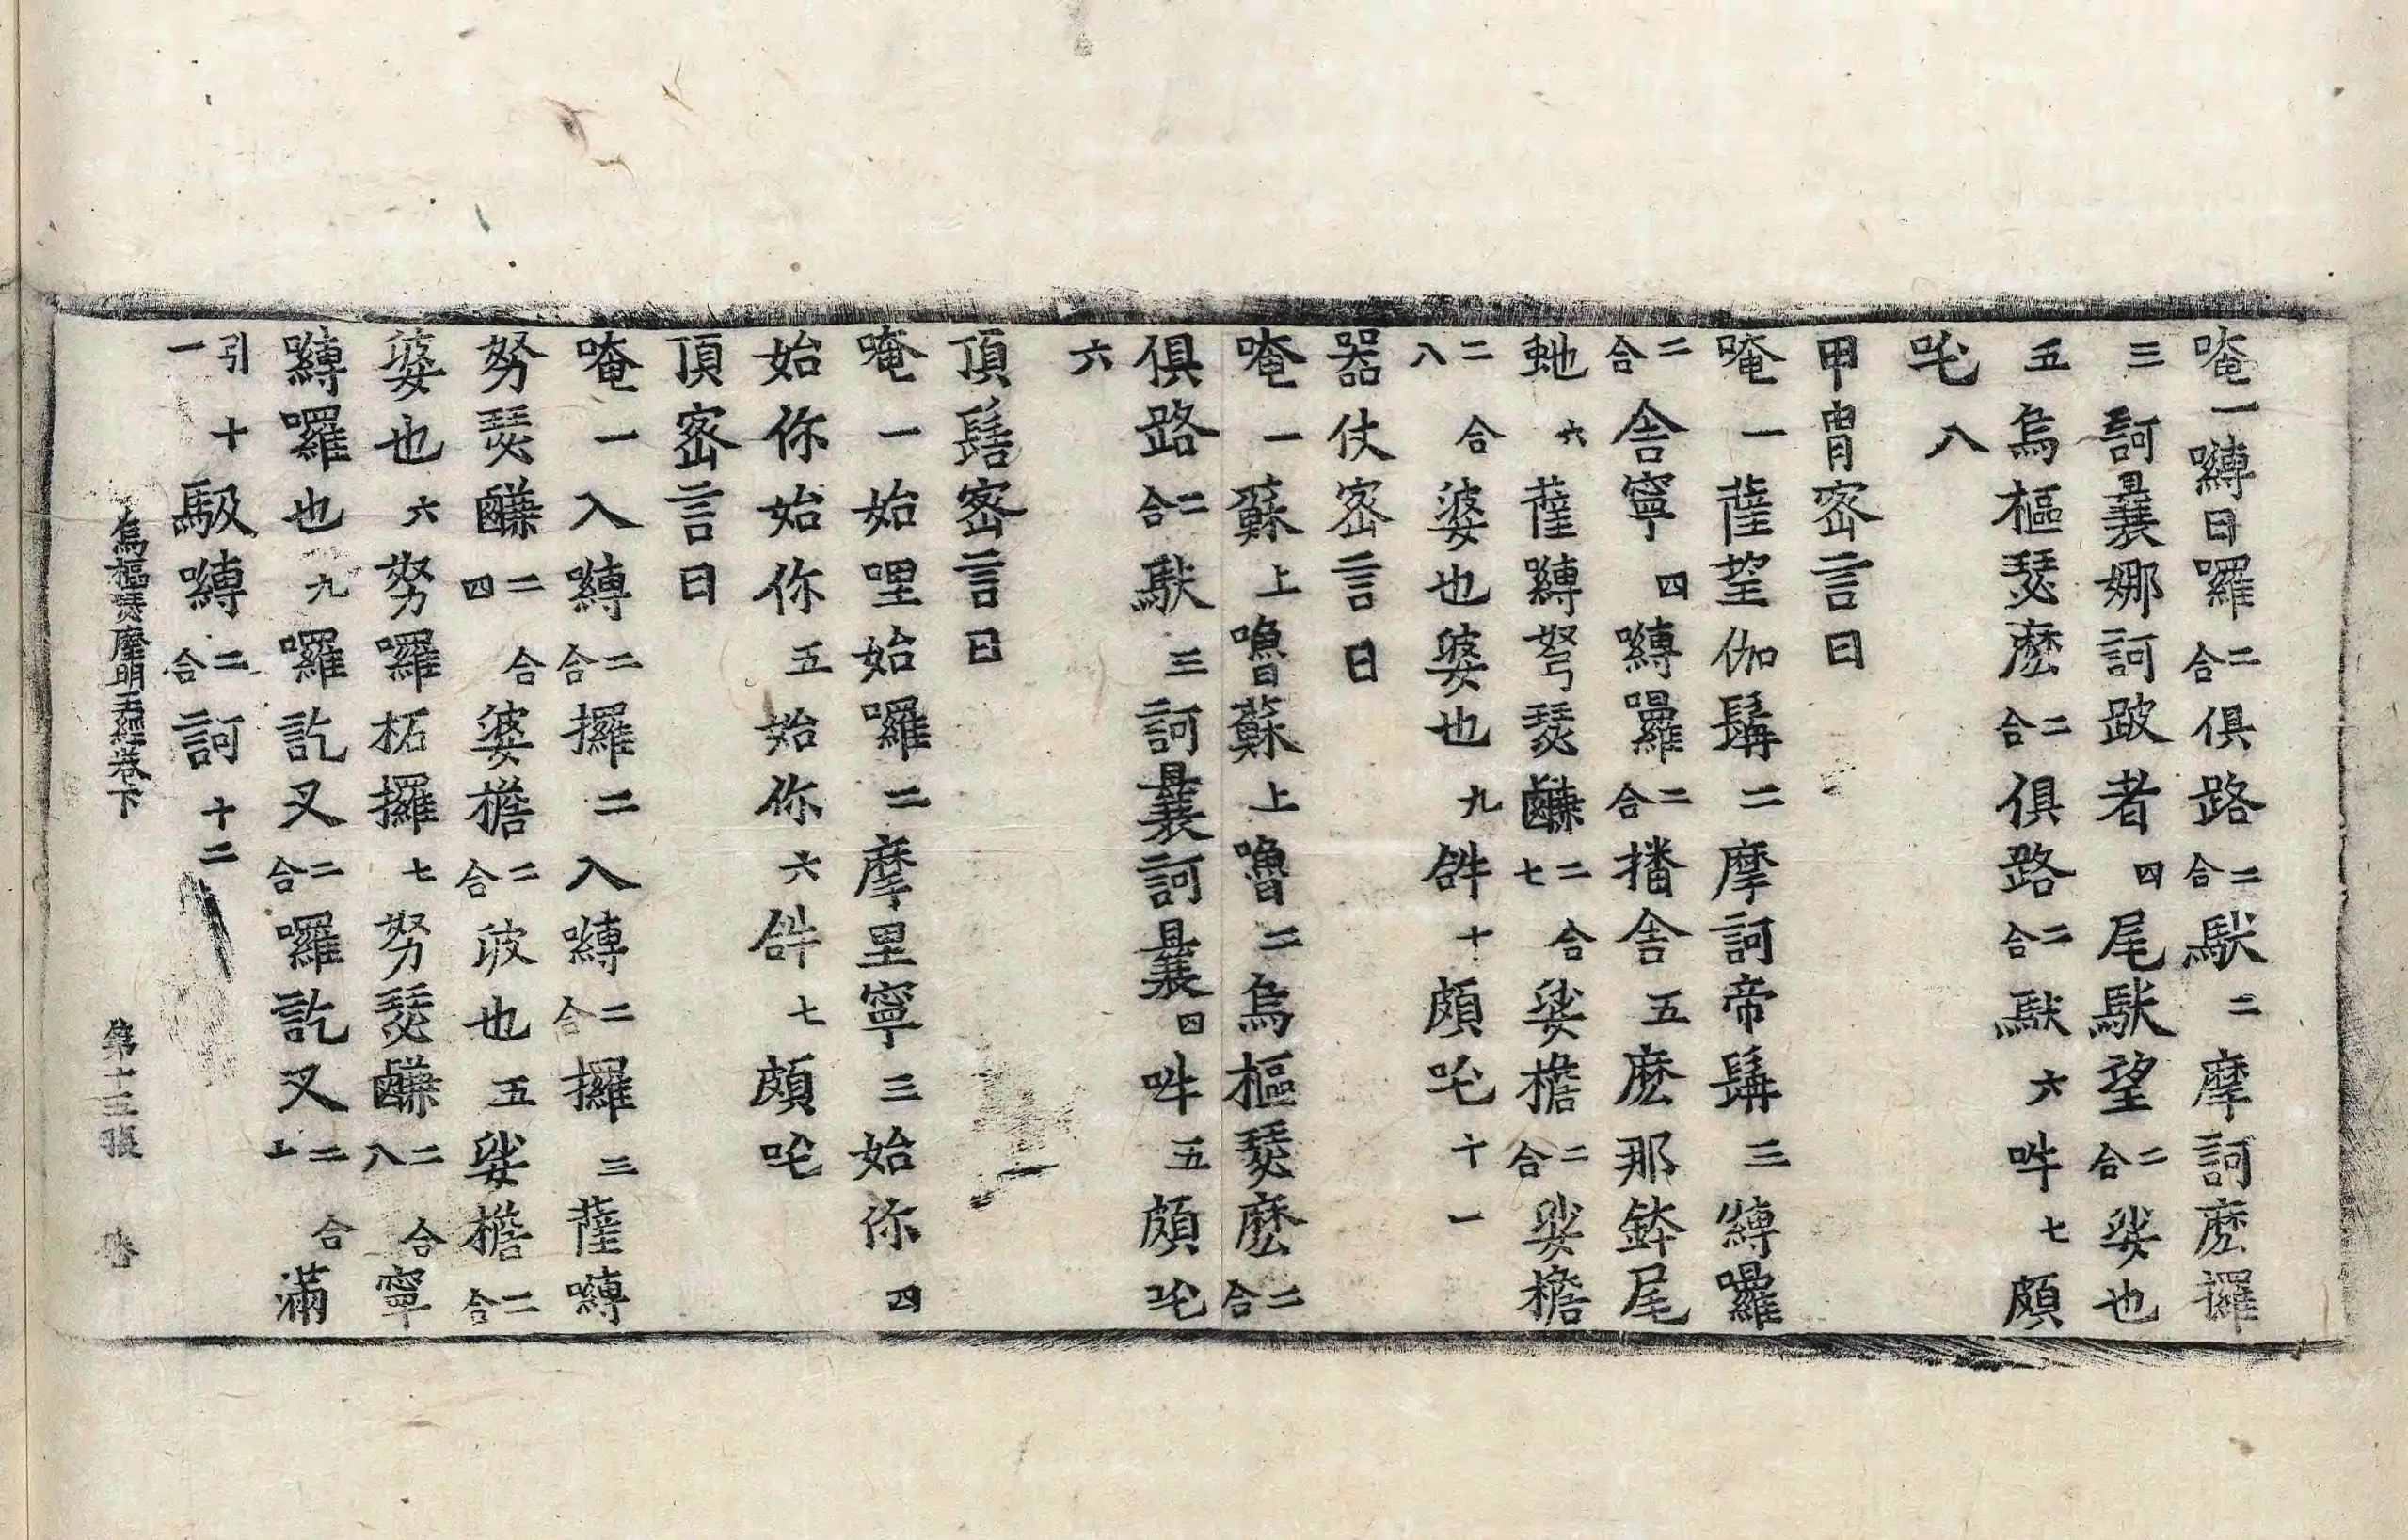 唵一嚩日囉二合俱路二合馱二摩訶麽攞
三訶曩娜訶跛者四尾馱望二合娑也
五烏樞瑟麽二合俱路二合馱六吽七頗
吒八
甲冑密言曰
唵一薩望伽髯二摩訶帝髯三嚩囉
二合舍寧四嚩囉二合播舍五麽那鉢尾
虵六薩嚩弩瑟𪉜二合七娑檐二合娑檐
二合八婆也婆也九𤙖十頗吒十一
器仗密言曰
唵一蘇上嚕蘇上嚕二烏樞瑟麽二合
俱路二合馱三訶曩訶曩四吽五頗吒
六
頂髻密言曰
唵一始哩始囉二摩里寧三始你四
始你始你五始你六𤙖七頗吒
頂密言曰
唵一入嚩二合攞二入嚩二合攞三薩嚩
努瑟𪉜二合四婆檐二合波也五娑檐二合
婆也六努囉柘攞七努瑟𪉜二合八寧
嚩囉也九囉訖叉二合囉訖叉二合十滿
引十一馺嚩二合訶十二
烏樞瑟摩明王經卷下 第十三張